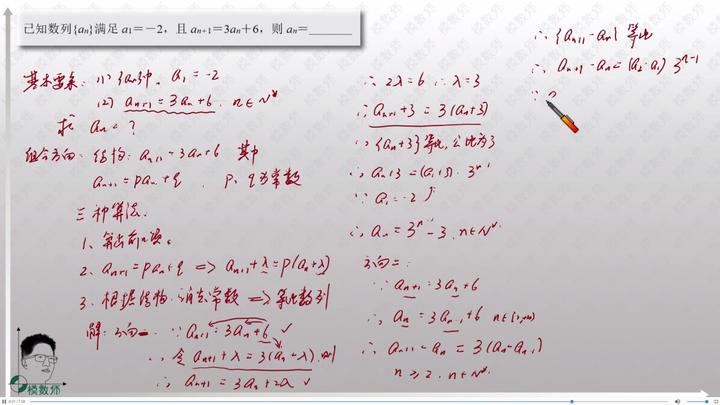 已知数列{aₙ}满足 a₁=-2，且 aₙ₊₁=3aₙ+6，则 aₙ=________
基本要素：(1) {aₙ}中，a₁=-2
(2) aₙ₊₁=3aₙ+6，n∈N*
求 aₙ=？
组合方向：结构：aₙ₊₁=3aₙ+6 其中
aₙ₊₁=paₙ+q，p、q为常数
三种算法：
1、算出前n项。
2、aₙ₊₁=paₙ+q => aₙ₊₁+λ=p(aₙ+λ)
3、根据结构，消去常数 => 等比数列
解：方向一：∵aₙ₊₁=3aₙ+6 ✓
∴令 aₙ₊₁+λ=3(aₙ+λ)，则
∴aₙ₊₁=3aₙ+2λ ✓
∴2λ=6 ∴λ=3
∴aₙ₊₁+3=3(aₙ+3)
∴{aₙ+3}等比，公比为3
∴aₙ+3=(a₁+3)·3ⁿ⁻¹
∵a₁=-2
∴aₙ=3ⁿ⁻¹-3，n∈N*
方向二：
∵aₙ₊₁=3aₙ+6
∴aₙ=3aₙ₋₁+6
∴aₙ₊₁-aₙ=3(aₙ-aₙ₋₁)
n≥2，n∈N*
∴{aₙ₊₁-aₙ}等比
∴aₙ₊₁-aₙ=(a₂-a₁)3ⁿ⁻¹
模数师